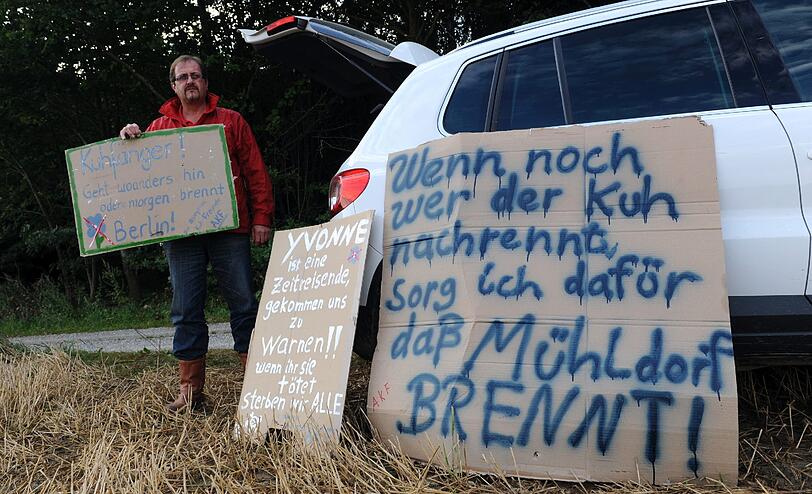 Kuhfänger!
Geht woanders hin
oder morgen brennt
Berlin!
AKF
YVONNE
ist eine
Zeitreisende,
gekommen uns
zu
warnen!!
wenn ihr sie
tötet
sterben wir ALLE
Wenn noch
wer der Kuh
nachrennt,
sorg ich dafür
daß Mühldorf
BRENNT!
AKF